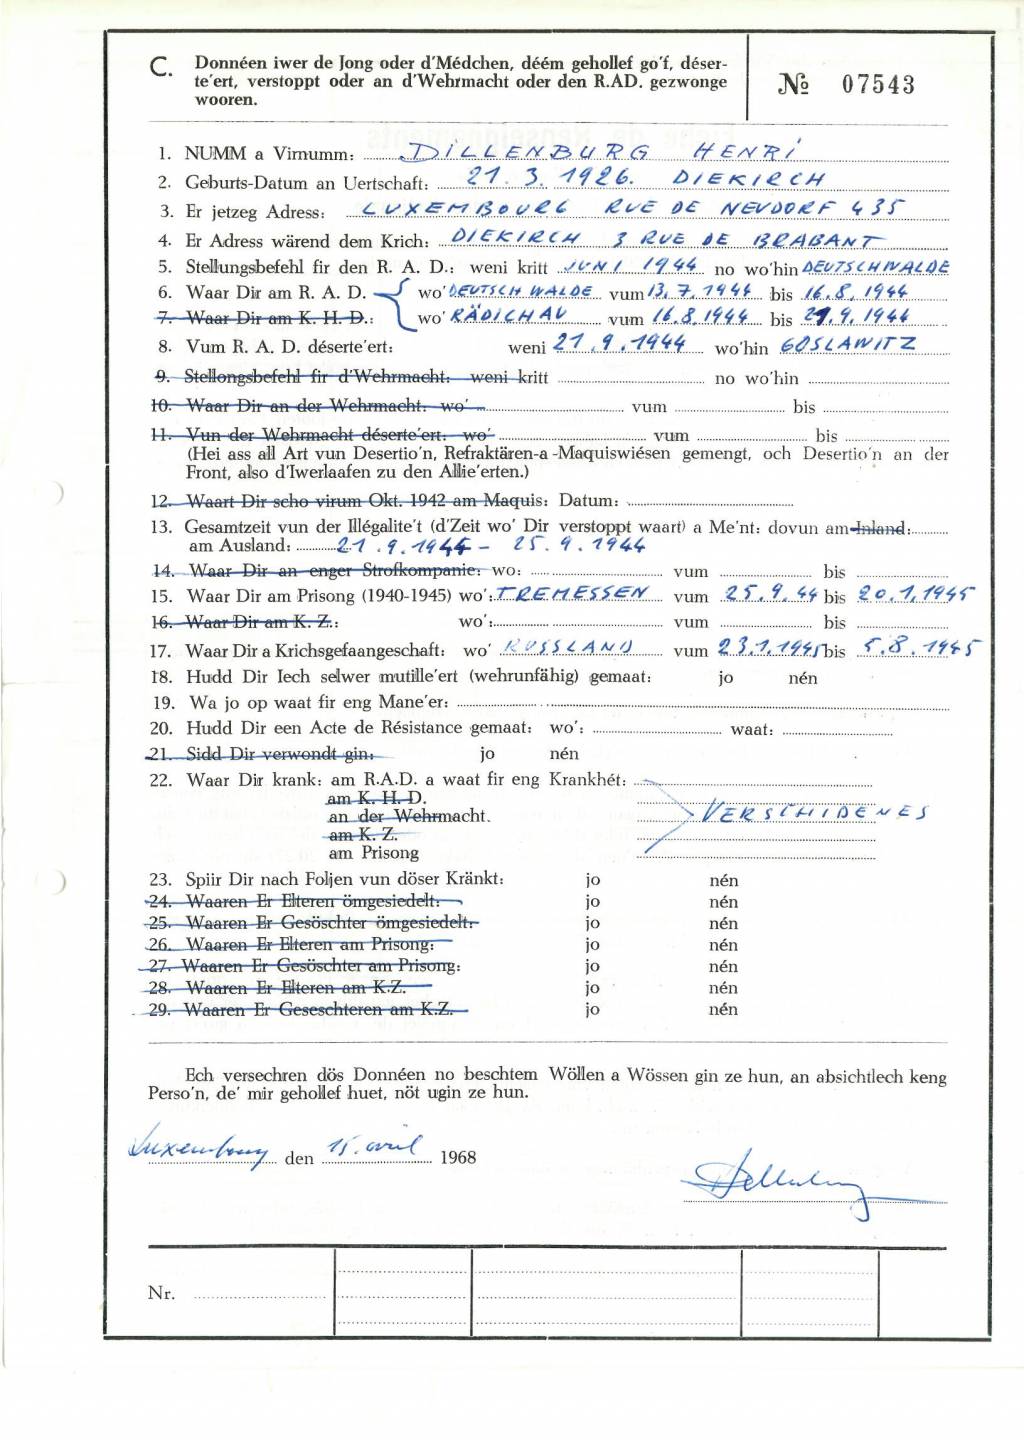 C. Donnéen iwer de Jong oder d'Médchen, déém gehollef go'f, déser-
te'ert, verstoppt oder an d'Wehrmacht oder den R.AD. gezwonge
wooren.
№ 07543
1. NUMM a Virnumm: DILLENBURG HENRI
2. Geburts-Datum an Uertschaft: 21.3.1926. DIEKIRCH
3. Er jetzeg Adress: LUXEMBOURG RUE DE NEUDORF 435
4. Er Adress wärend dem Krich: DIEKIRCH 3 RUE DE BRABANT
5. Stellungsbefehl fir den R. A. D.: weni kritt JUNI 1944 no wo'hin DEUTSCHWALDE
6. Waar Dir am R. A. D. wo' DEUTSCH WALDE vum 13.7.1944 bis 16.8.1944
7. Waar Dir am K. H. D.: wo' RÄDICHAU vum 16.8.1944 bis 21.9.1944
8. Vum R. A. D. déserte'ert: weni 21.9.1944 wo'hin GOSLAWITZ
9. Stellongsbefehl fir d'Wehrmacht: weni kritt no wo'hin
10. Waar Dir an der Wehrmacht: wo' vum bis
11. Vun der Wehrmacht déserte'ert: wo' vum bis
(Hei ass all Art vun Desertio'n, Refraktären-a-Maquiswiésen gemengt, och Desertio'n an der
Front, also d'Iwerlaafen zu den Allie'erten.)
12. Waart Dir scho virum Okt. 1942 am Maquis: Datum:
13. Gesamtzeit vun der Illégalite't (d'Zeit wo' Dir verstoppt waart) a Me'nt: dovun am Inland:
am Ausland: 21.9.1944 - 25.9.1944
14. Waar Dir an enger Strofkompanie: wo: vum bis
15. Waar Dir am Prison͏g (1940-1945) wo': TREMESSEN vum 25.9.44 bis 20.1.1945
16. Waar Dir am K. Z.: wo': vum bis
17. Waar Dir a Krichsgefaangeschaft: wo' RUSSLAND vum 23.1.1945 bis 5.8.1945
18. Hudd Dir Iech selwer mutille'ert (wehrunfähig) gemaat: jo nén
19. Wa jo op waat fir eng Mane'er:
20. Hudd Dir een Acte de Résistance gemaat: wo': waat:
21. Sidd Dir verwondt gin: jo nén
22. Waar Dir krank: am R.A.D. a waat fir eng Krankhét:
am K. H. D.
an der Wehrmacht. VERSCHIDENES
am K. Z.
am Prisong
23. Spiir Dir nach Foljen vun döser Kränkt: jo nén
24. Waaren Er Elteren ömgesiedelt: jo nén
25. Waaren Er Gesöschter ömgesiedelt: jo nén
26. Waaren Er Elteren am Prisong: jo nén
27. Waaren Er Gesöschter am Prisong: jo nén
28. Waaren Er Elteren am K.Z. jo nén
29. Waaren Er Geseschteren am K.Z. jo nén
Ech versechren dös Donnéen no beschtem Wöllen a Wössen gin ze hun, an absichtlech keng
Perso'n, de' mir gehollef huet, nöt ugin ze hun.
Luxembourg den 15. avril 1968
Dillenburg
Nr.